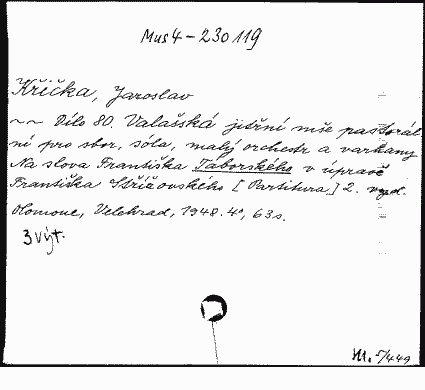 Mus 4 - 230 119
Křička, Jaroslav
~~ Dílo 80. Valašská jitřní mše pastorál
ní pro sbor, sóla, malý orchestr a varhany
Na slova Františka Táborského v úpravě
Františka Střížovského [Partitura.] 2. vyd.
Olomouc, Velehrad, 1948. 4°, 63 s.
3 výt.
M. 5/449